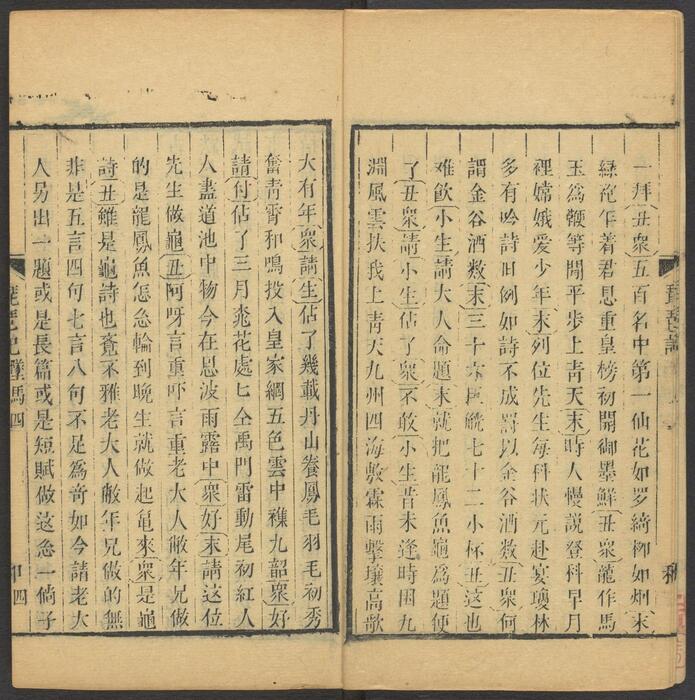 一拜丑衆五百名中第一仙花如罗綺柳如烟末
綠袍乍着君恩重皇榜初開御墨鮮丑衆龍作馬
玉爲鞭等閒平步上青天末時人慢説登科早月
裡嫦娥愛少年末列位先生每科狀元赴宴瓊林
多有吟詩旧例如詩不成罰以金谷酒数丑衆何
謂金谷酒数末三十六風觥七十二小杯丑这也
难飲小生請大人命題末就把龍鳳魚龜爲題便
了丑衆請小生佔了衆不敢小生昔未逢時困九
淵風雲扶我上青天九州四海敷霖雨擊壤高歌
大有年衆請生佔了幾載丹山養鳳毛羽毛初秀
奮青霄和鳴投入皇家網五色雲中襍九韶衆好
請付佔了三月桃花處匕仝禹門雷動尾初紅人
人盡道池中物今在恩波雨露中衆好末請这位
先生做龜丑阿呀言重吓言重老大人敝年兄做
的是龍鳳魚怎怠輪到晚生就做起龟來衆是龜
詩丑雖是龜詩也覺不雅老大人敝年兄做的無
非是五言四句七言八句不足爲竒如今請老大
人另出一題或是長篇或是短賦做这怠一倘子
琵琶記 墜馬 四
中四